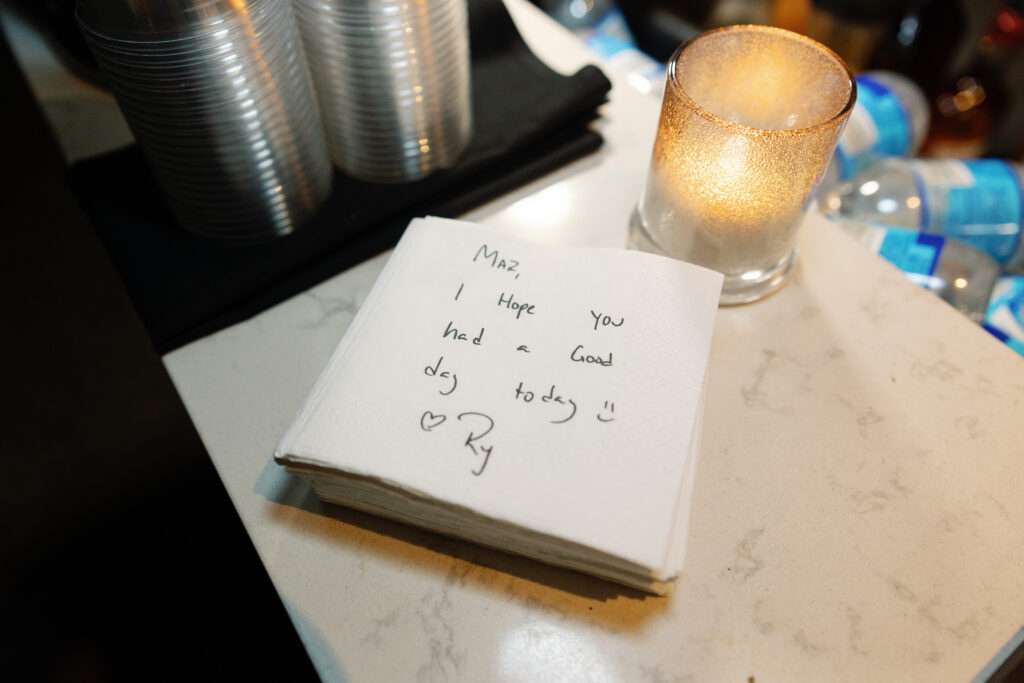 Maz,
I Hope You
had a Good
day today :)
♡ Ry